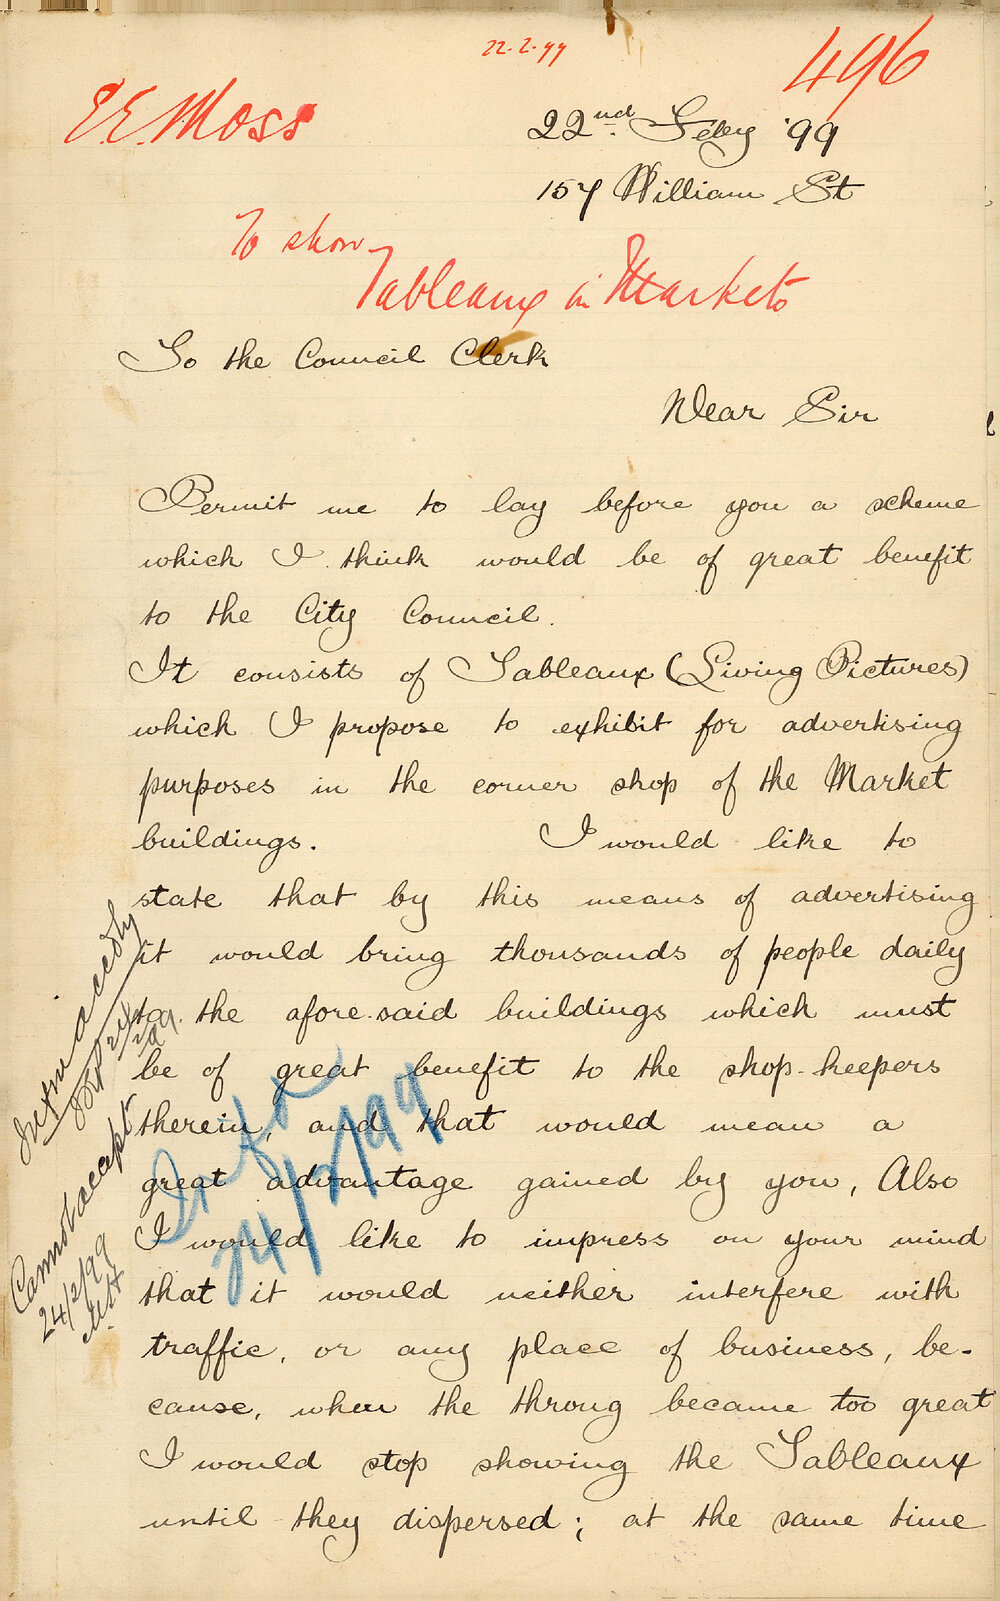 22.2.99
496
E.E. Moss
22nd Feby '99
157 William St
To show
Tableaux in Markets
To the Council Clerk
Dear Sir
Permit me to lay before you a scheme
which I think would be of great benefit
to the City Council.
It consists of Tableaux (Living Pictures)
which I propose to exhibit for advertising
purposes in the corner shop of the Market
buildings. I would like to
state that by this means of advertising
it would bring thousands of people daily
to the afore said buildings which must
be of great benefit to the shop-keepers
therein, and that would mean a
great advantage gained by you, Also
I would like to impress on your mind
that it would neither interfere with
traffic, or any place of business, be-
cause, when the throng became too great
I would stop showing the Tableaux
until they dispersed; at the same time
Inform accdly
Cannot accept
24/2/99
24/2/99